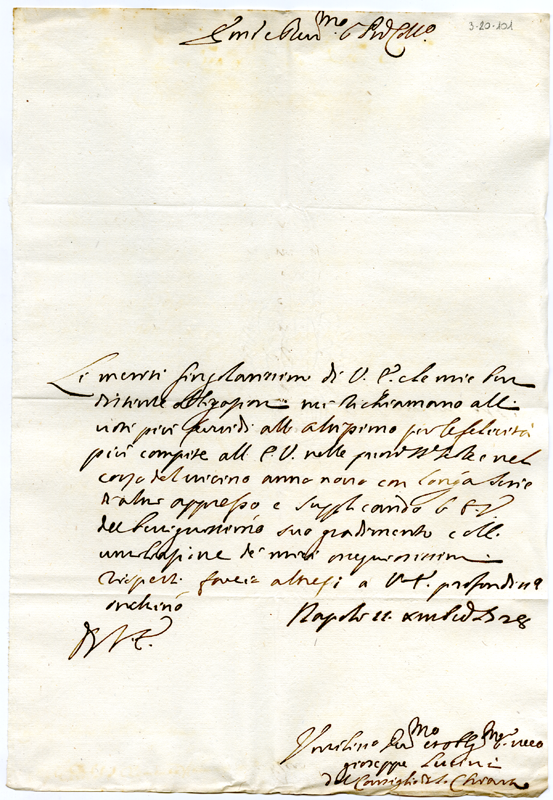 3-20-101
Em.e Rev.mo Sig.re
Li meriti singolarissimi di V. E. che mie ben
distinte obligazioni mi richiamano alli
voti più fervidi all'altissimo per le felicità
più compite all' E. V. nelle prossime feste e nel
corso del vicino anno novo con longa serie
d'altri appresso e supplicando
del benignissimo suo gradimento e dell
umiliazione de miei ossequiosissimi
rispetti faccio altresì a V. E. profondiss.mo
inchino
Napoli
Di V. E.
Umilissimo Dev.mo et obblig.mo
Giuseppe
del Consiglio di S. Chiara